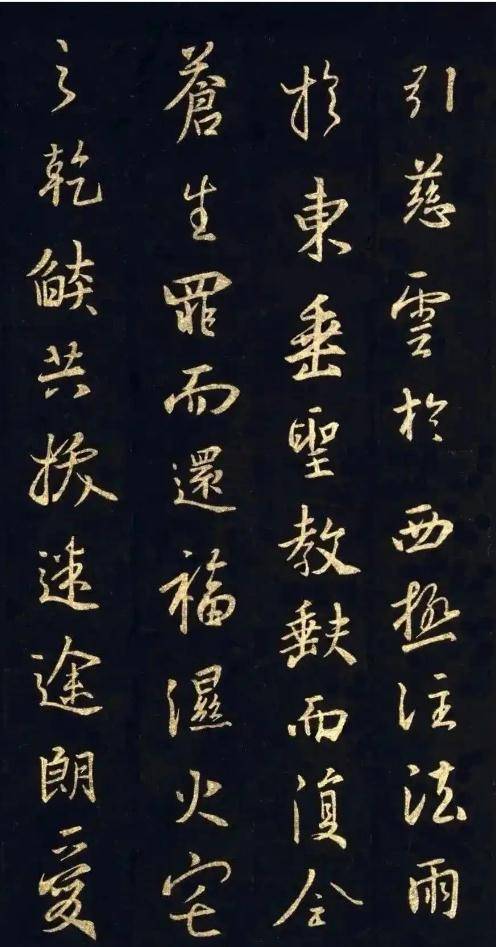 引慈雲於西極注法雨
於東垂聖教缺而復全
蒼生罪而還福濕火宅
之乾燄共拔迷途朗愛